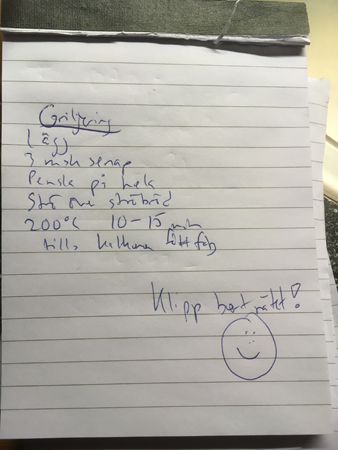 Griljering
1 ägg
3 msk senap
Pensla på
Strö över ströbröd
200°C 10-15 min
tills fått färg
Klipp bort nätet!